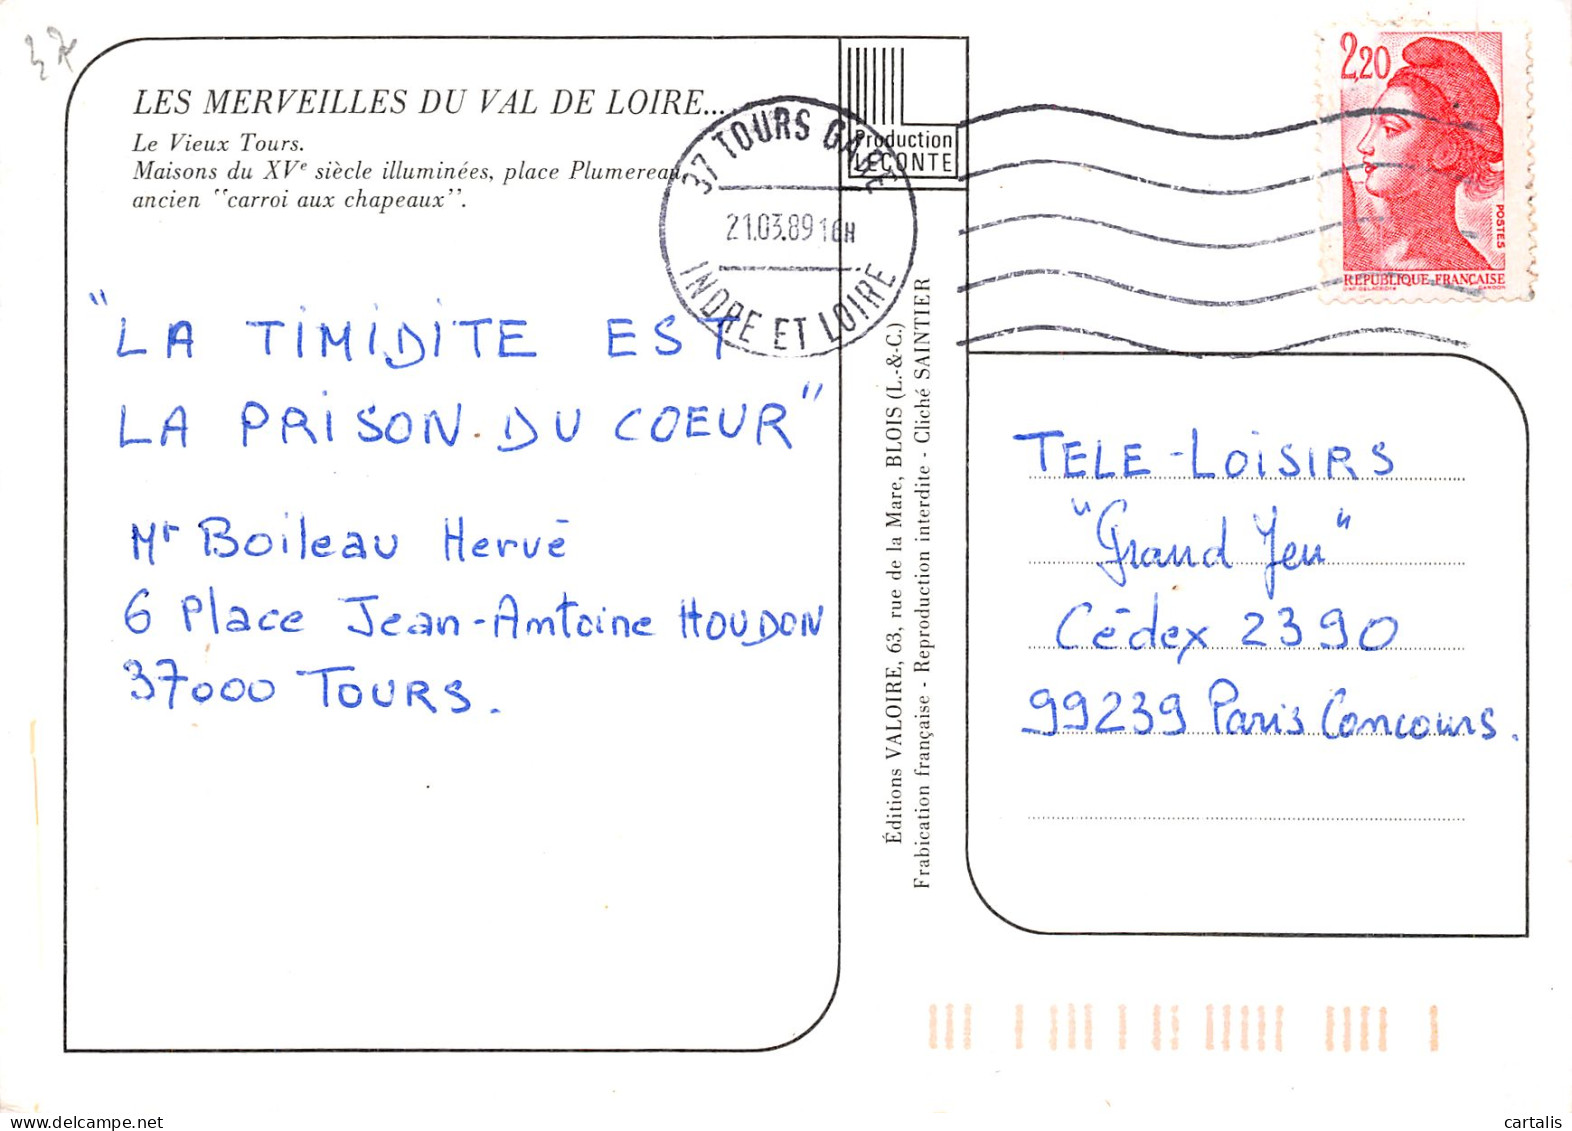 37
LES MERVEILLES DU VAL DE LOIRE...
Le Vieux Tours.
Maisons du XVe siècle illuminées, place Plumereau,
ancien "carroi aux chapeaux".
Production
LECONTE
37 TOURS GARE
21.03.89 16H
INDRE ET LOIRE
2,20
POSTES
REPUBLIQUE FRANÇAISE
D'AP. DELACROIX GANDON
"LA TIMIDITE EST
LA PRISON DU COEUR"
Mr Boileau Hervé
6 Place Jean-Antoine HOUDON
37000 TOURS.
Éditions VALOIRE, 63, rue de la Mare, BLOIS (L.-&-C.)
Frabication française - Reproduction interdite - Cliché SAINTIER
TELE-LOISIRS
"Grand Jeu"
Cédex 2390
99239 Paris Concours.
cartalis
www.delcampe.net